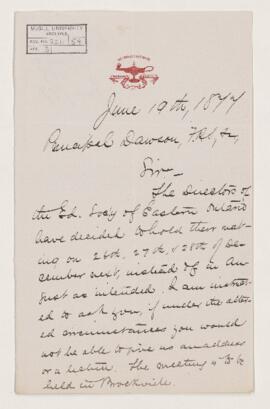 McGILL UNIVERSITY
ARCHIVES
ACC. NO. 927/54
REF. 3
June 19th, 1877
Principal Dawson, F.R.S, &c,
Sir—
The Directors of
the Ed. Socy of Eastern Ontario
have decided to hold their meet-
ing on 26th, 27th, & 28th of De-
cember next, instead of in Au-
gust as intended. I am instruct-
ed to ask you, if under the alter-
ed circumstances you would
not be able to give us an address
or a lecture. The meeting is to be
held in Brockville.